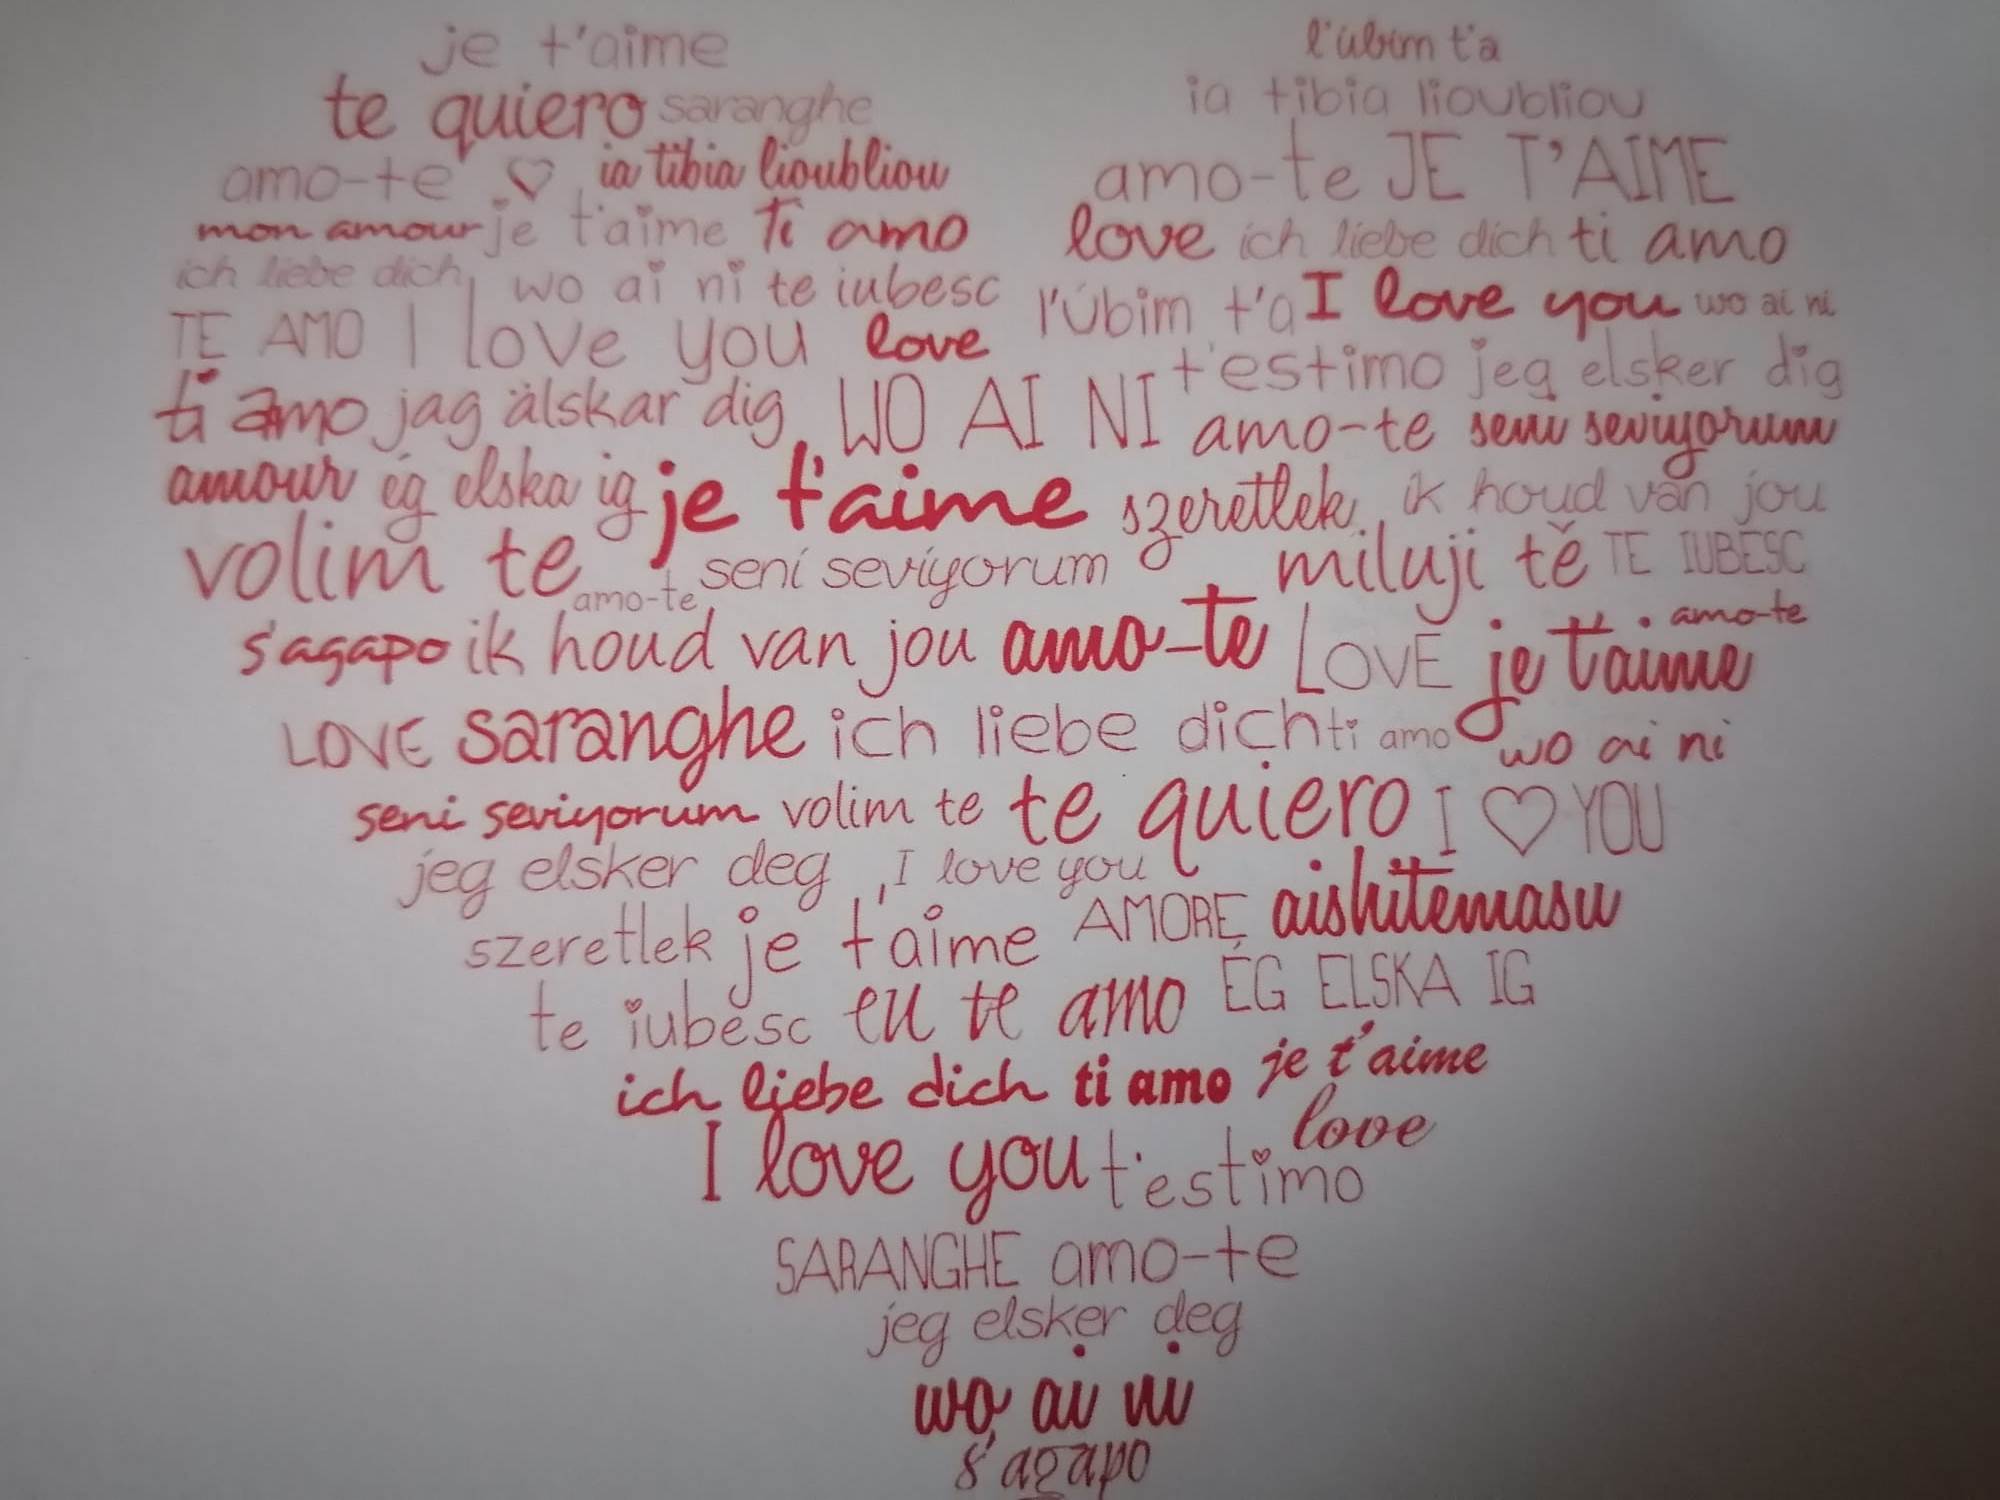 je t'aime
l'úbim t'a
te quiero saranghe
ia tibia lioubliou
amo-te ia tibia lioubliou
amo-te JE T'AIME
mon amour je t'aime Ti amo
love ich liebe dich ti amo
ich liebe dich wo ai ni te iubesc
l'Úbim t'a I love you wo ai ni
TE AMO I love you love
t'estimo jeg elsker dig
ti amo jag älskar dig WO AI NI amo-te seni seviyorum
amour ég elska ig je t'aime szeretlek ik houd van jou
volim te amo-te seni seviyorum miluji tě TE IUBESC
s'agapo ik houd van jou amo-te LOVE je t'aime amo-te
LOVE saranghe ich liebe dich ti amo wo ai ni
seni seviyorum volim te te quiero I ♡ YOU
jeg elsker deg I love you
szeretlek je t'aime AMORE aishitemasu
te iubesc eu te amo ÉG ELSKA IG
ich liebe dich ti amo je t'aime
love
I love you t'estimo
SARANGHE amo-te
jeg elsker deg
wo ai ni
s'agapo